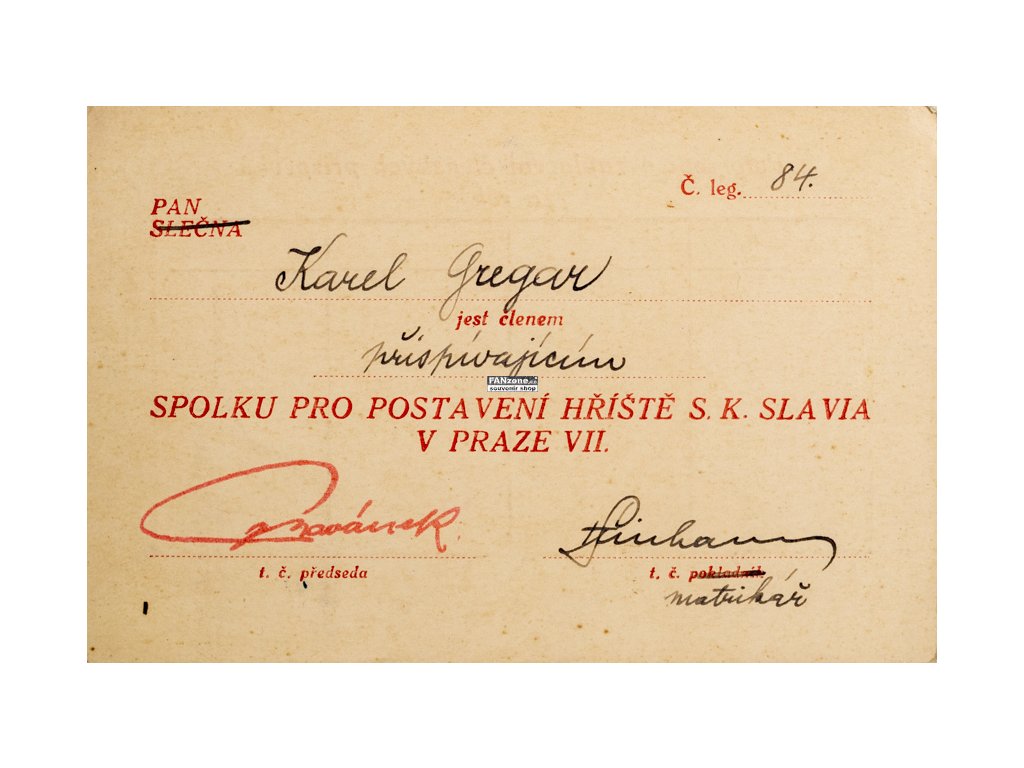 Č. leg. 84.
PAN
SLEČNA
Karel Gregar
jest členem
přispívajícím
FANzone.cz
souvenir shop
SPOLKU PRO POSTAVENÍ HŘÍŠTĚ S. K. SLAVIA
V PRAZE VII.
t. č. předseda
t. č. pokladník
matrikář